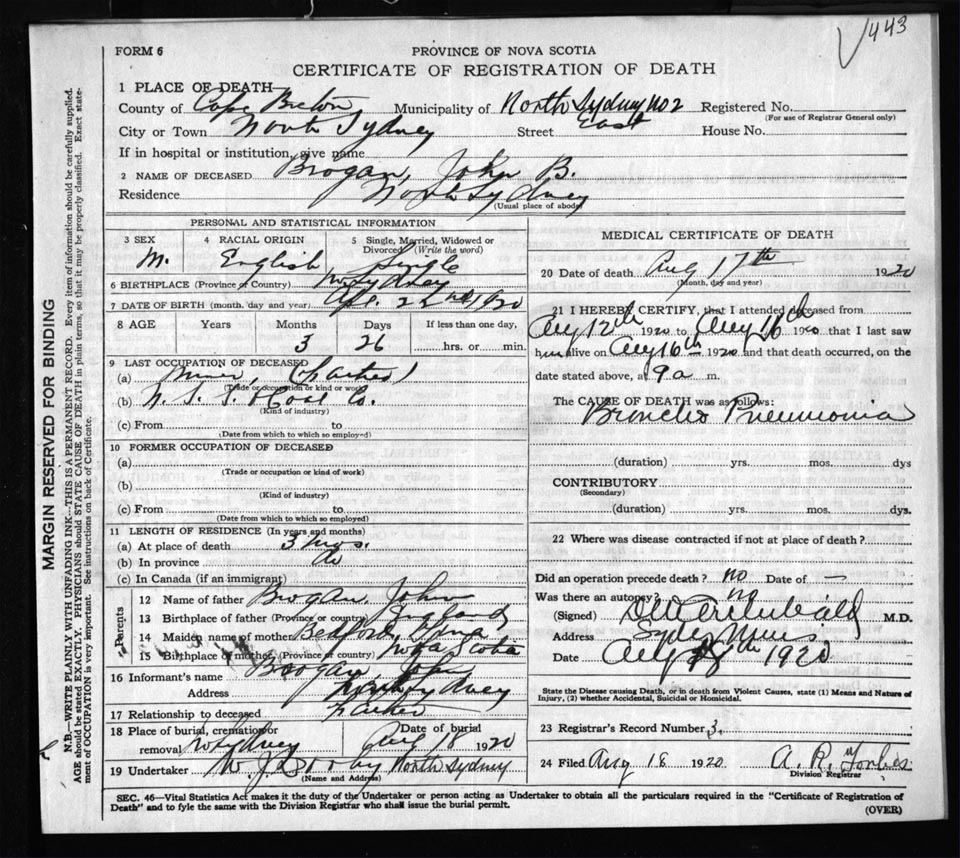 443
FORM 6
PROVINCE OF NOVA SCOTIA
CERTIFICATE OF REGISTRATION OF DEATH
1 PLACE OF DEATH—
County of Cape Breton Municipality of North Sydney No 2 Registered No.
(For use of Registrar General only)
City or Town North Sydney Street East House No.
If in hospital or institution, give name
2 NAME OF DECEASED Brogan, John B.
Residence North Sydney
(Usual place of abode)
PERSONAL AND STATISTICAL INFORMATION
3 SEX M. 4 RACIAL ORIGIN English 5 Single, Married, Widowed or Divorced (Write the word) Single
6 BIRTHPLACE (Province or Country) N. Sydney
7 DATE OF BIRTH (month, day and year) Apl. 22nd 1920
8 AGE Years Months Days If less than one day,
3 26 hrs. or min.
9 LAST OCCUPATION OF DECEASED
(a) Miner,
(Trade or occupation or kind of work)
(b) N. S. S. & Coal Co.
(Kind of industry)
(c) From to
(Date from which to which so employed)
10 FORMER OCCUPATION OF DECEASED
(a)
(Trade or occupation or kind of work)
(b)
(Kind of industry)
(c) From to
(Date from which to which so employed)
11 LENGTH OF RESIDENCE (In years and months)
(a) At place of death 3 mos.
(b) In province do
(c) In Canada (if an immigrant)
Parents
12 Name of father Brogan, John
13 Birthplace of father (Province or country) England
14 Maiden name of mother Bedford, Edna
15 Birthplace of mother (Province or country) Nova Scotia
16 Informant's name Brogan, John
Address North Sydney
17 Relationship to deceased Father
18 Place of burial, cremation or removal N. Sydney Date of burial Aug 18 1920
19 Undertaker W. J. Dooley North Sydney
(Name and Address)
MEDICAL CERTIFICATE OF DEATH
20 Date of death Aug 17th 1920
(Month, day and year)
21 I HEREBY CERTIFY, that I attended deceased from
Aug 12th 1920 to Aug 16th 1920 that I last saw
him alive on Aug 16th 1920 and that death occurred, on the
date stated above, at 9 a m.
The CAUSE OF DEATH was as follows:
Broncho Pneumonia
(duration) yrs. mos. dys
CONTRIBUTORY
(Secondary)
(duration) yrs. mos. dys.
22 Where was disease contracted if not at place of death?
Did an operation precede death? no Date of —
Was there an autopsy? no
(Signed) Archibald M.D.
Address Sydney Mines
Date Aug 18th 1920
State the Disease causing Death, or in death from Violent Causes, state (1) Means and Nature of
Injury, (2) whether Accidental, Suicidal or Homicidal.
23 Registrar's Record Number 3.
24 Filed Aug 18 1920 A. R. Forbes
Division Registrar
SEC. 46—Vital Statistics Act makes it the duty of the Undertaker or person acting as Undertaker to obtain all the particulars required in the "Certificate of Registration of
Death" and to fyle the same with the Division Registrar who shall issue the burial permit.
(OVER)
MARGIN RESERVED FOR BINDING
N.B—WRITE PLAINLY WITH UNFADING INK—THIS IS A PERMANENT RECORD. Every item of information should be carefully supplied.
AGE should be stated EXACTLY. PHYSICIANS should STATE CAUSE OF DEATH in plain terms, so that it may be properly classified. Exact state-
ment of OCCUPATION is very important. See instructions on back of Certificate.